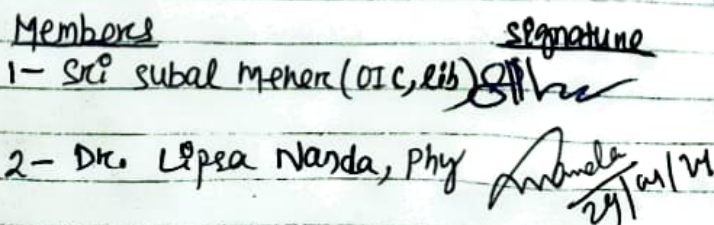 Members signature
1- Sri subal meher (OIC, lib)
2- Dr. Lipsa Nanda, Phy